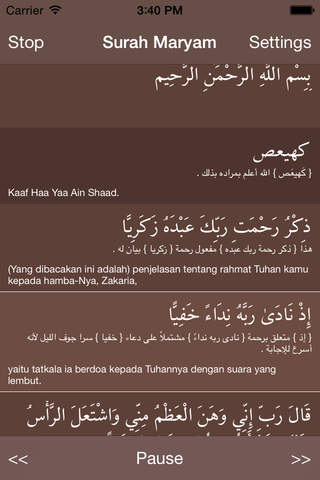 Carrier 3:40 PM
Stop Surah Maryam Settings
بِسْمِ اللَّهِ الرَّحْمَنِ الرَّحِيمِ
كهيعص
{ كَهيعص } الله أعلم بمراده بذلك .
Kaaf Haa Yaa Ain Shaad.
ذِكْرُ رَحْمَتِ رَبِّكَ عَبْدَهُ زَكَرِيَّا
هذا { ذكر رحمة ربك عبده } مفعول رحمة { زكريا } بيان له .
(Yang dibacakan ini adalah) penjelasan tentang rahmat Tuhan kamu
kepada hamba-Nya, Zakaria,
إِذْ نَادَىٰ رَبَّهُ نِدَاءً خَفِيًّا
{ إذ } متعلق برحمة { نادى ربه نداءً } مشتملاً على دعاء { خفيا } سرا جوف الليل لأنه
أسرع للإجابة .
yaitu tatkala ia berdoa kepada Tuhannya dengan suara yang
lembut.
قَالَ رَبِّ إِنِّي وَهَنَ الْعَظْمُ مِنِّي وَاشْتَعَلَ الرَّأْسُ
<< Pause >>